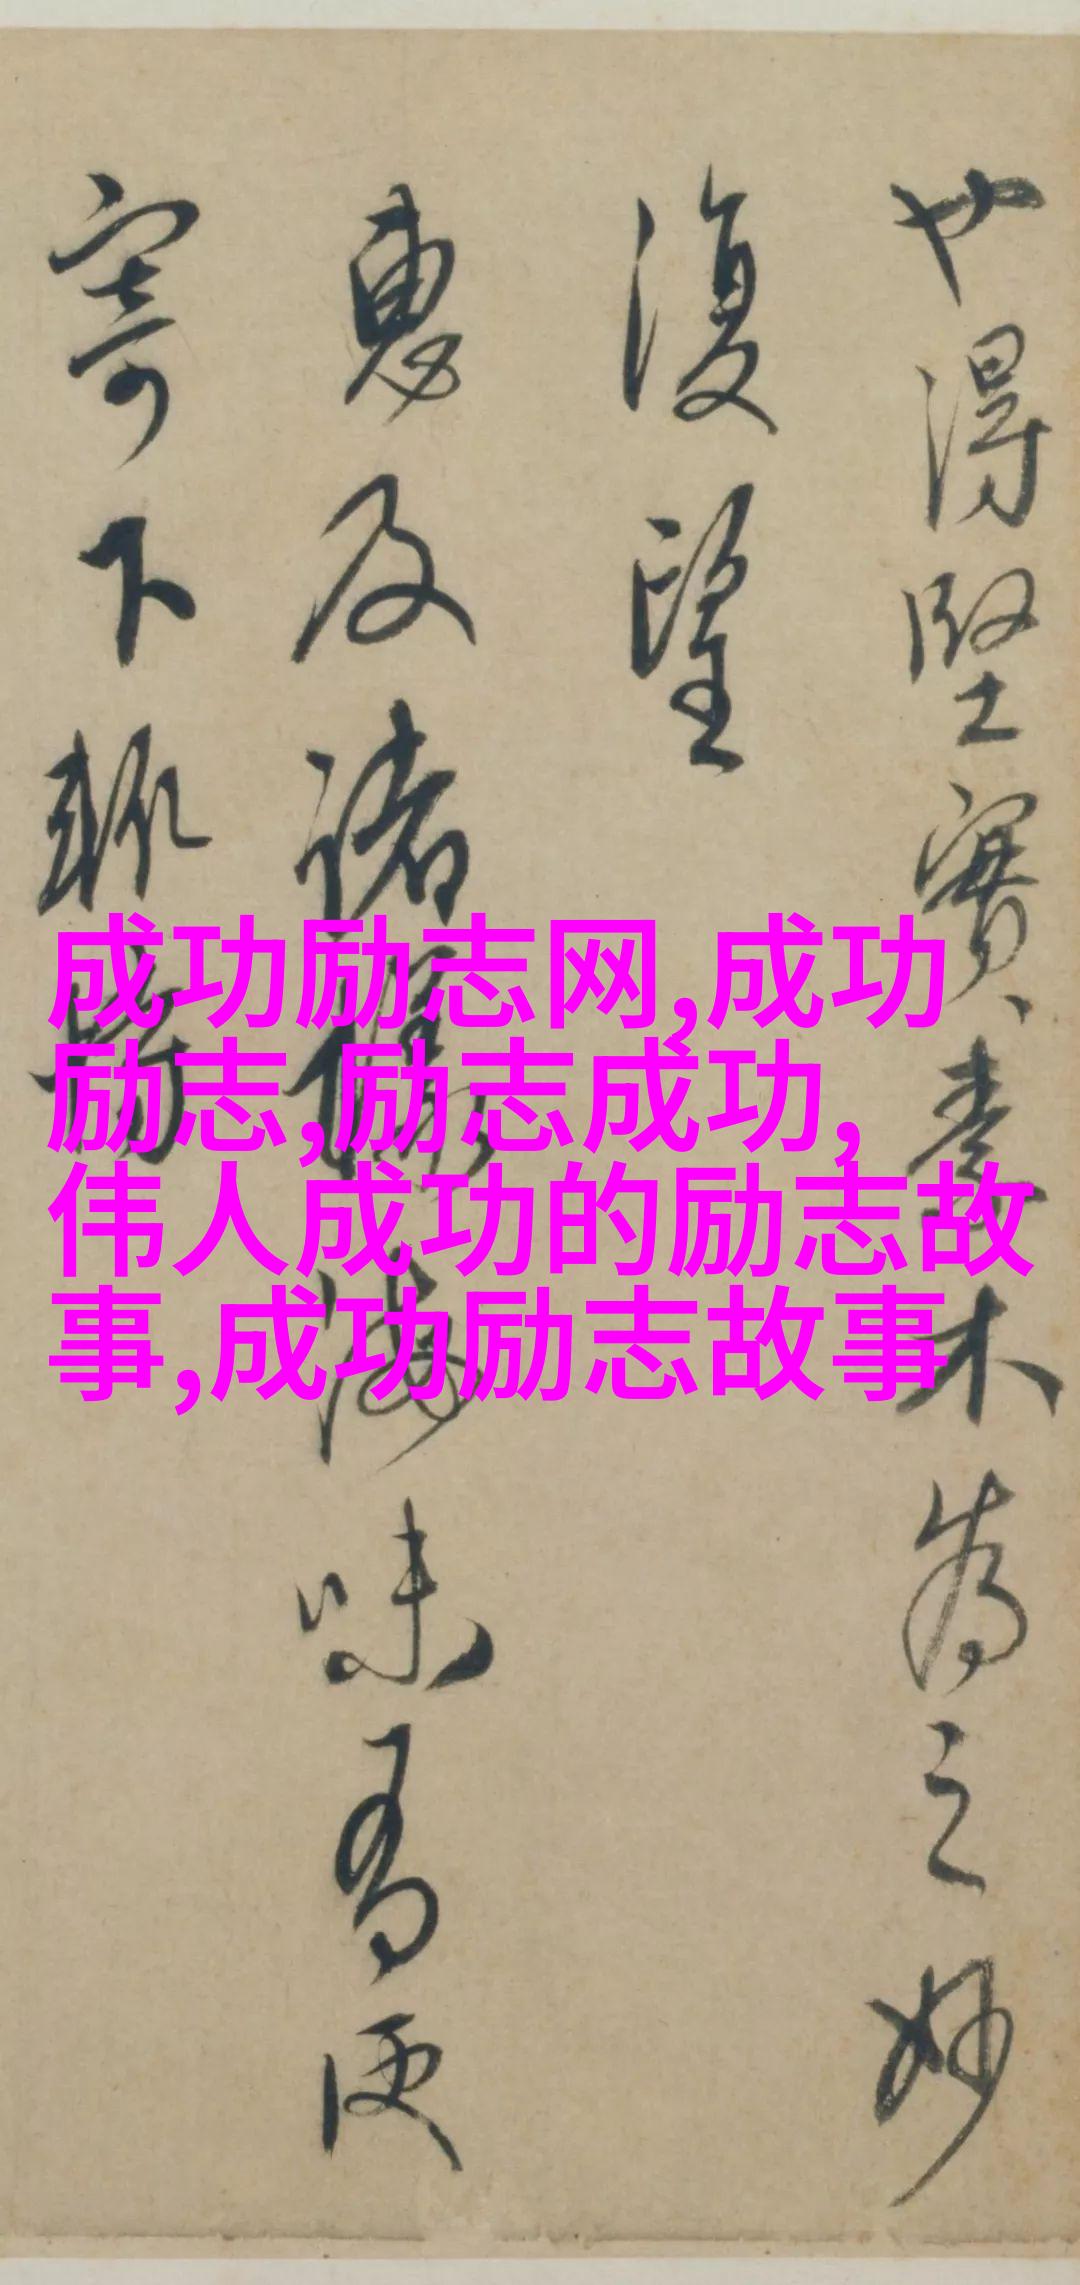 也得堅實奏木為之妙
復望
惠及諸樣海味有便
寄下輒
成功励志网,成功
励志,励志成功,
伟人成功的励志故
事,成功励志故事